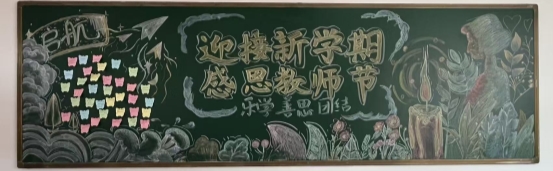 启航
迎接新学期
感恩教师节
乐学 善思 团结